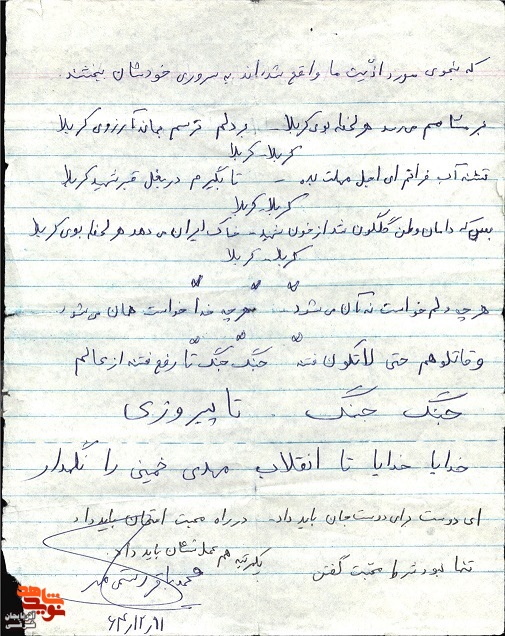 که بنحوی مورد اذیت ما واقع شده‌اند به سروری خودشان ببخشند
بر مشامم می‌رسد هر لحظه بوی کربلا - بر دلم ترسم بماند آرزوی کربلا
کربلا - کربلا
تشنه آب فراتم ای اجل مهلت بده - تا بگیرم در بغل قبر شهید کربلا
کربلا کربلا
بس که دامان وطن گلگون شد از خون شهید - خاک ایران می دهد هر لحظه بوی کربلا
کربلا - کربلا
هر چه دلم خواست نه آن می‌شود - هر چه خدا خواست همان می‌شود
وقاتلوهم حتی لاتکون فتنه جنگ جنگ تا رفع فتنه از عالم
جنگ جنگ تا پیروزی
خدایا خدایا تا انقلاب مهدی خمینی را نگهدار
ای دوست برای دوست جان باید داد - در راه محبت امتحان باید داد
تنها نبود شرط محبت گفتن
یکمرتبه هم عمل نشان باید داد.
۶۴٫۱۲٫۱۱
شاهد
نوید
آذربایجان